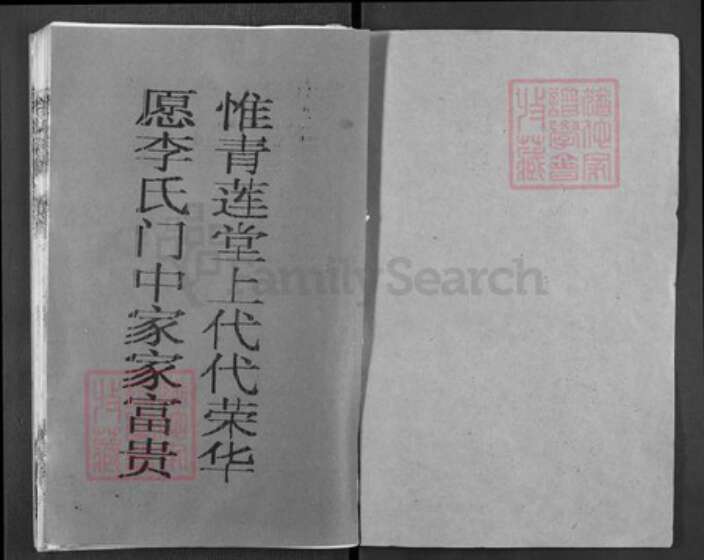 惟青莲堂上代代荣华
愿李氏门中家家富贵
FamilySearch